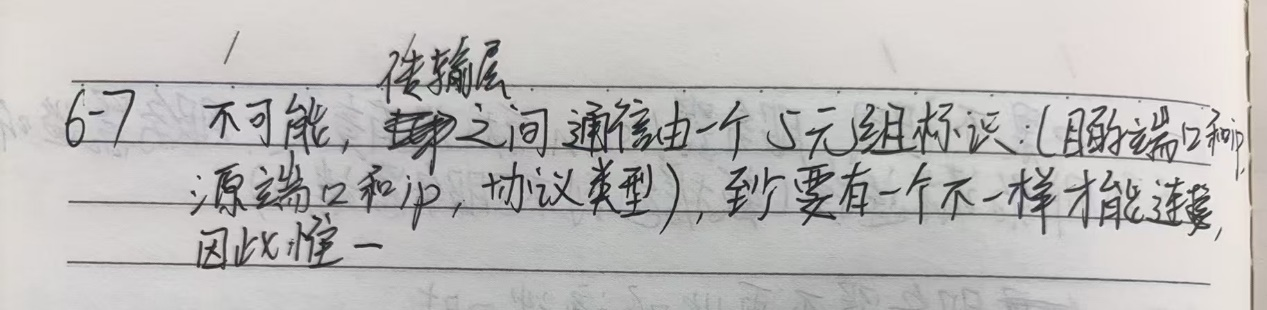 传输层
6-7 不可能，之间通信由一个5元组标识：(目的端口和ip，
源端口和ip，协议类型)，至少要有一个不一样才能连接，
因此惟一